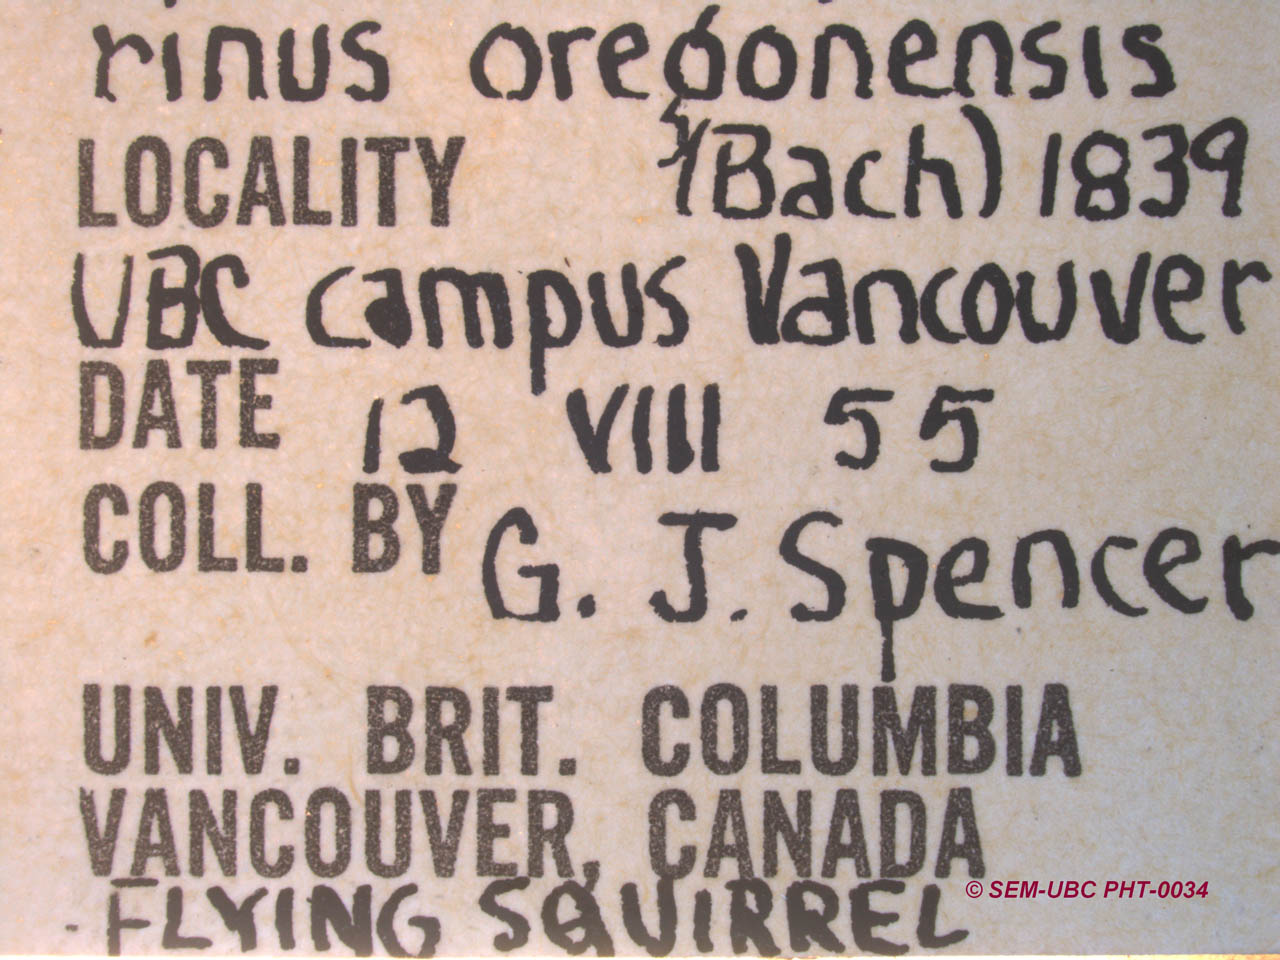 rinus oregonensis
LOCALITY (Bach) 1839
UBC campus Vancouver
DATE 12 VIII 55
COLL. BY G. J. Spencer
UNIV. BRIT. COLUMBIA
VANCOUVER, CANADA
FLYING SQUIRREL
© SEM-UBC PHT-0034